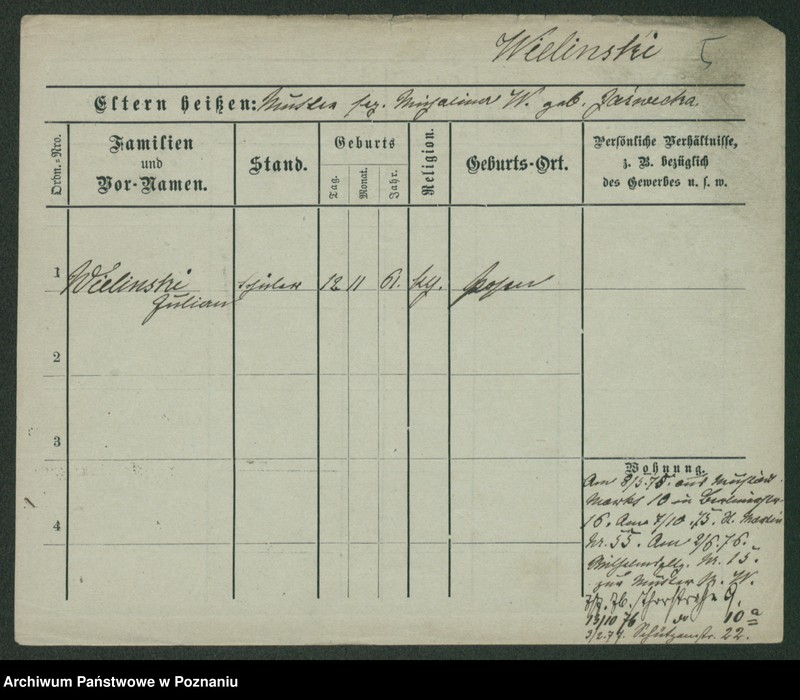 Wielinski 5
Eltern heißen: Mutter sep. W. geb. Jaśwecka.
Ordn.-Nro.
Familien
und
Vor-Namen.
Stand.
Geburts
Tag.
Monat.
Jahr.
Religion.
Geburts-Ort.
Persönliche Verhältnisse,
z. B. bezüglich
des Gewerbes u. s. w.
1 Wielinski Schüler 12 11 61. kth. Posen
Julian
2
3
4
Wohnung.
Am 8/5.75. aus Neustädt.
Markt 10 in Berlinerstr.
16. Am 7/10.75. St. Martin
Nr. 55. Am 2/6.76.
Wilhelmsplz. Nr. 15.
zur Mutter W.
9.
13/10 76 do 10 a
3/2.77. Schützenstr. 22.
Archiwum Państwowe w Poznaniu